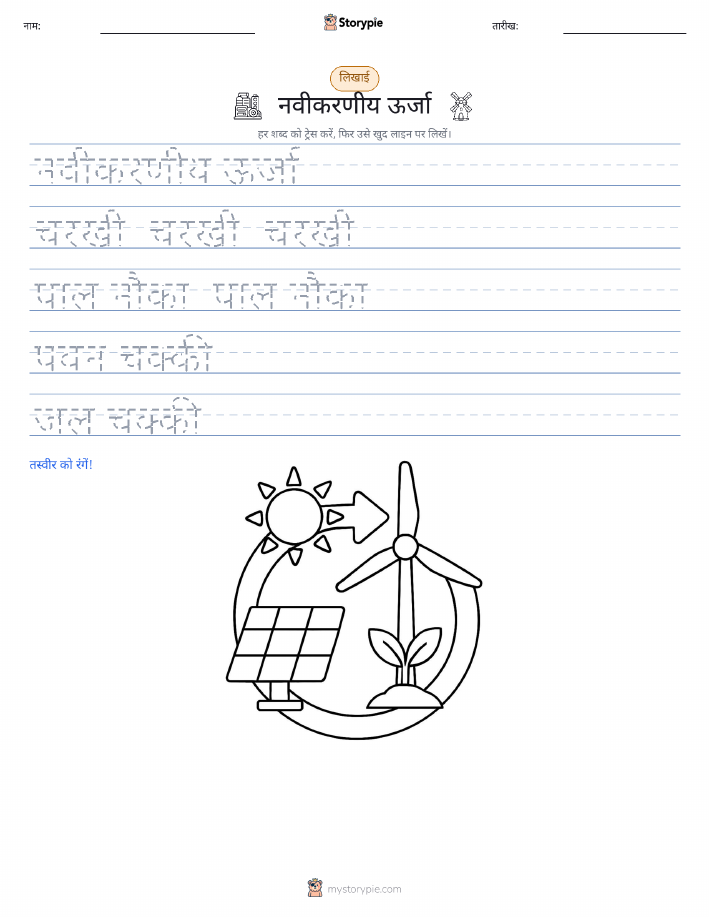 नाम: Storypie तारीख:
लिखाई
नवीकरणीय ऊर्जा
हर शब्द को ट्रेस करें, फिर उसे खुद लाइन पर लिखें।
नवीकरणीय ऊर्जा
चरखी चरखी चरखी
पाल नौका पाल नौका
पवन चक्की
जल चक्की
तस्वीर को रंगें!
mystorypie.com